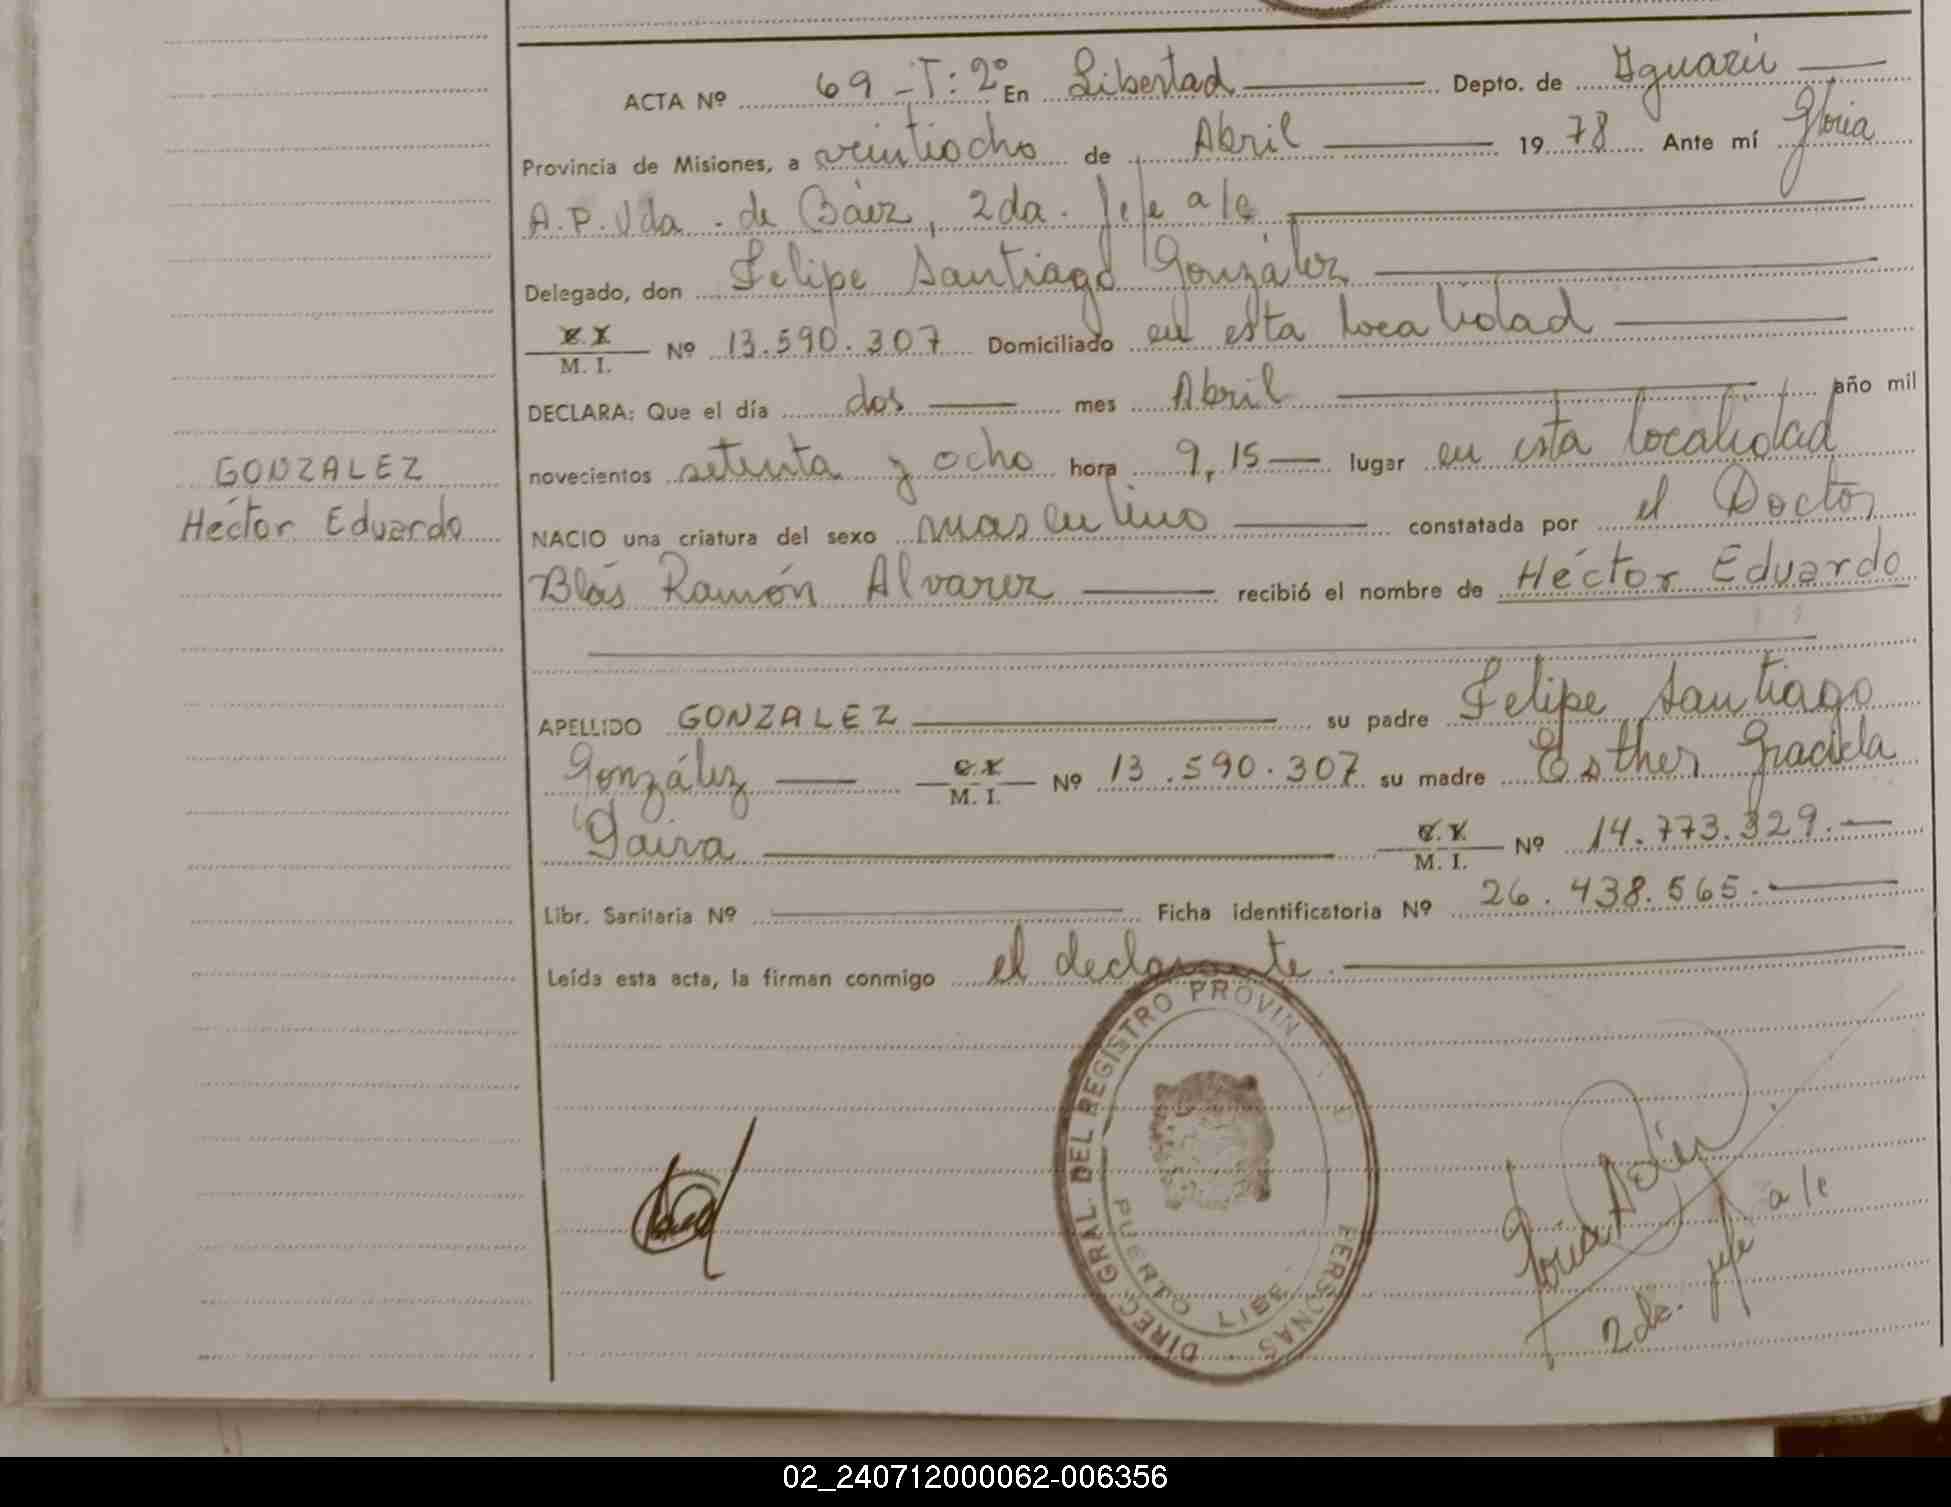 ACTA Nº 69 - T: 2º En Libertad Depto. de Iguazú
Provincia de Misiones, a veintiocho de Abril 19 78 Ante mí Gloria
A.P. Vda. de Báez, 2da. Jefe a/c
Delegado, don Felipe Santiago González
M. I. Nº 13.590.307 Domiciliado en esta localidad
DECLARA: Que el día dos mes Abril año mil
novecientos setenta y ocho hora 9,15 lugar en esta localidad
GONZALEZ
Héctor Eduardo
NACIO una criatura del sexo masculino constatada por el Doctor
Blás Ramón Alvarez recibió el nombre de Héctor Eduardo
APELLIDO GONZALEZ su padre Felipe Santiago
González M. I. Nº 13.590.307 su madre Esther Graciela
Gaira M. I. Nº 14.773.329.
Libr. Sanitaria Nº Ficha identificatoria Nº 26.438.565.
Leída esta acta, la firman conmigo el declarante.
DIREC. GRAL. DEL REGISTRO PROVIN PERSONAS
PUERTO LIBE
2da. Jefe a/c
02_240712000062-006356